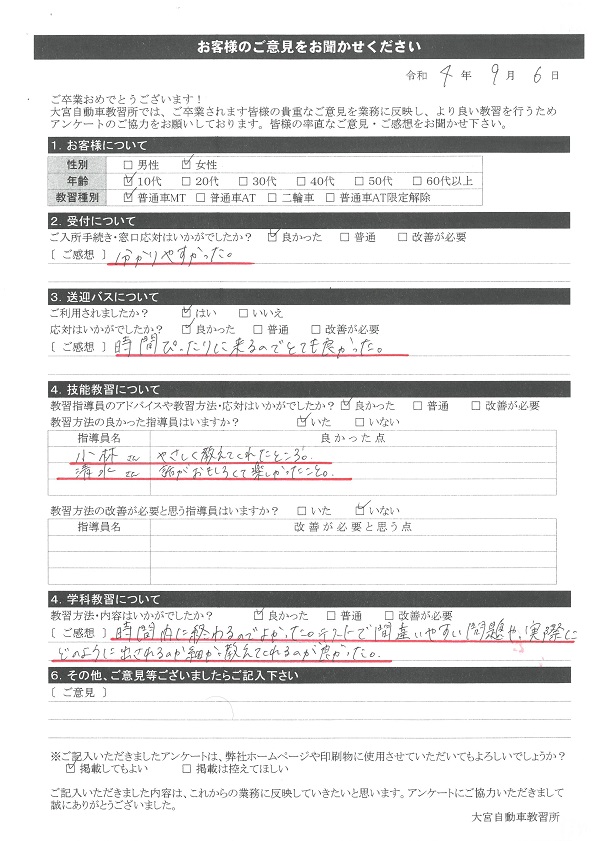 お客様のご意見をお聞かせください
令和 4 年 9 月 6 日
ご卒業おめでとうございます！
大宮自動車教習所では、ご卒業されます皆様の貴重なご意見を業務に反映し、より良い教習を行うため
アンケートのご協力をお願いしております。皆様の率直なご意見・ご感想をお聞かせ下さい。
1. お客様について
性別 □ 男性 ☑ 女性
年齢 ☑ 10代 □ 20代 □ 30代 □ 40代 □ 50代 □ 60代以上
教習種別 ☑ 普通車MT □ 普通車AT □ 二輪車 □ 普通車AT限定解除
2. 受付について
ご入所手続き・窓口応対はいかがでしたか？ ☑ 良かった □ 普通 □ 改善が必要
［ ご感想 ］ 分かりやすかった。
3. 送迎バスについて
ご利用されましたか？ ☑ はい □ いいえ
応対はいかがでしたか？ ☑ 良かった □ 普通 □ 改善が必要
［ ご感想 ］ 時間ぴったりに来るのでとても良かった。
4. 技能教習について
教習指導員のアドバイスや教習方法・応対はいかがでしたか？ ☑ 良かった □ 普通 □ 改善が必要
教習方法の良かった指導員はいますか？ ☑ いた □ いない
指導員名 良かった点
小林 さん やさしく教えてくれたところ。
清水 さん 話がおもしろくて楽しかったこと。
教習方法の改善が必要と思う指導員はいますか？ □ いた ☑ いない
指導員名 改善が必要と思う点
4. 学科教習について
教習方法・内容はいかがでしたか？ ☑ 良かった □ 普通 □ 改善が必要
［ ご感想 ］ 時間内に終わるのでよかった。テストで間違いやすい問題や、実際に
どのように出されるのか細かく教えてくれるのが良かった。
6. その他、ご意見等ございましたらご記入下さい
［ ご意見 ］
※ご記入いただきましたアンケートは、弊社ホームページや印刷物に使用させていただいてもよろしいでしょうか？
☑ 掲載してもよい □ 掲載は控えてほしい
ご記入いただきました内容は、これからの業務に反映していきたいと思います。アンケートにご協力いただきまして
誠にありがとうございました。
大宮自動車教習所